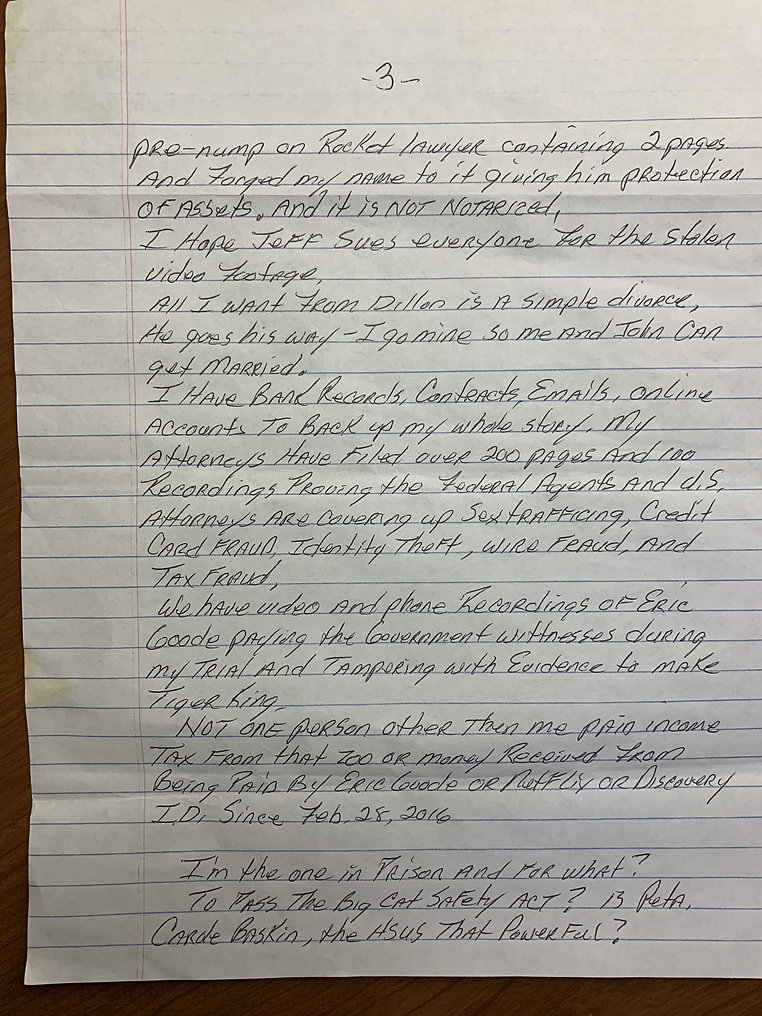 -3-
pre-nump on Rocket lawyer containing 2 pages
And Forged my name to it giving him protection
OF Assets. And it is NOT NOTARIZED,
I Hope JEFF Sues everyone for the Stolen
video Footage,
All I want From Dillon is A simple divorce,
He goes his way - I go mine so me and John CAN
get Married.
I Have BANK Records, Contracts, Emails, online
Accounts To Back up my whole story. My
Attorneys Have Filed over 200 pages And 100
Recordings Proving the Federal Agents And U.S.
Attorneys Are covering up Sextrafficing, Credit
CARD FRAUD, Identity Theft, wire Fraud, And
TAX FRAUD,
We have video And phone Recordings OF Eric
Goode paying the Government wittnesses during
my TRIAL And TAMPering with Evidence to make
Tiger King.
NOT ONE person other Then me paid income
TAX From that zoo or money Received From
Being Paid By Eric Goode or Netflix or Discovery
I.D. Since Feb. 28, 2016
I'm the one in Prison And FOR what?
To PASS The Big CAt SAFety ACT? IS PetA,
Carole BASkin, the HSUS That PowerFul?